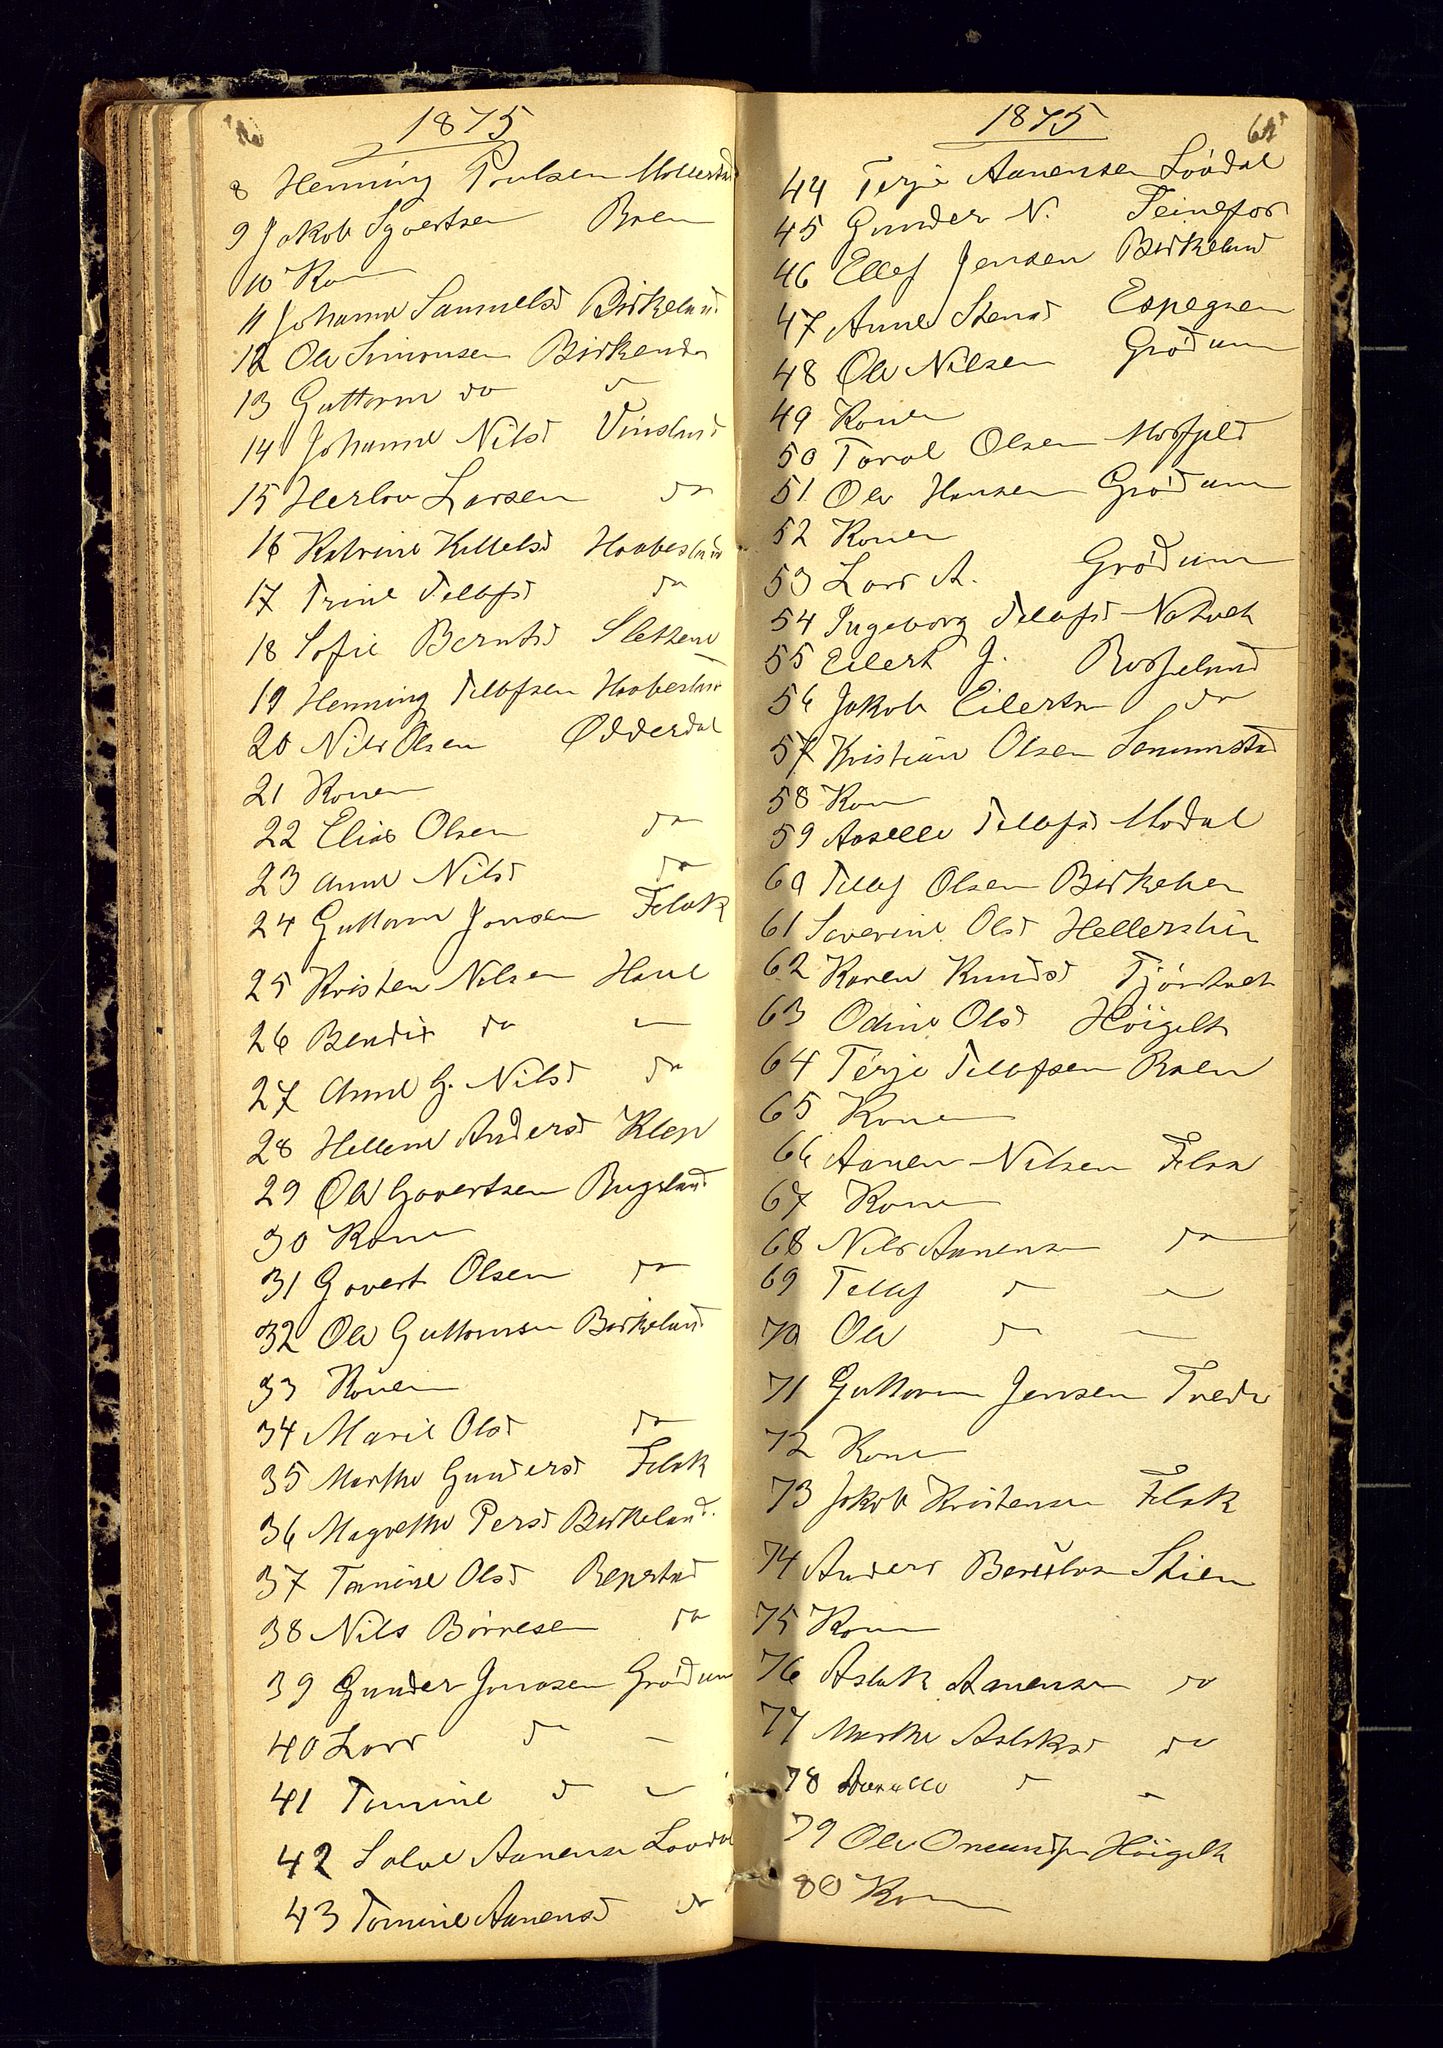 1875
8 Henning Poulsen Mollestad
9 Jakob Syvertsen Boen
10 Kon
11 Johanne Samuelsd Birkeland
12 Ole Simonsen Birkenes
13 Guttorm do
14 Johanne Nilsd Vinsland
15 Herlov Larsen do
16 Katrine Kittelsd Haabesland
17 Trine Tellefsd do
18 Sofie Berntsd Sletten
19 Henning Tellefsen Haabesland
20 Nils Olsen Ødderdal
21 Konen
22 Elias Olsen do
23 Anne Nilsd do
24 Guttorm Jensen Flak
25 Kristen Nilsen Haue
26 Bendix do –
27 Anne G. Nilsd do
28 Hellene Andersd Klep
29 Ole Govertsen Bugsland
30 Kone
31 Govert Olsen do
32 Ole Guttormsen Birkeland
33 Konen
34 Marie Olsd do
35 Marthe Gundersd Felak
36 Magrethe Persd Birkeland
37 Tomine Olsd Repstad
38 Nils Børresen do
39 Gunder Jonasen Grødum
40 Lars do –
41 Tomine do –
42 Salve Aanensen Løvdal
43 Tomine Aanensd do
1875
44 Terje Aanensen Løvdal
45 Gunder N. Teinefos
46 Ellef Jensen Birkeland
47 Anne Stensd Espegren
48 Ole Nilsen Grødum
49 Konen
50 Taral Olsen Mosfjeld
51 Ole Hansen Grødum
52 Konen
53 Lars A. Grødum
54 Ingeborg Tellefsd Natvet
55 Eilert J. Rosseland
56 Jakob Eilertsn do
57 Kristian Olsen Senumstad
58 Kon
59 Aaselle Tellefsd Modal
60 Tellef Olsen Birkehei
61 Severine Olsd Hellerslien
62 Karen Knudsd Tjørtvet
63 Odine Olsd Höigilt
64 Terje Tellefsen Boen
65 Kone
66 Aanen Nilsen Flak
67 Kone
68 Nils Aanensen do
69 Tellef do –
70 Ole do –
71 Guttorm Jensen Trede
72 Kone
73 Jakob Kristensen Flak
74 Anders Stien
75 Kone
76 Aslak Aanensen do
77 Marthe Aslaksd do
78 do –
79 Ole Höigilt
80 Kon